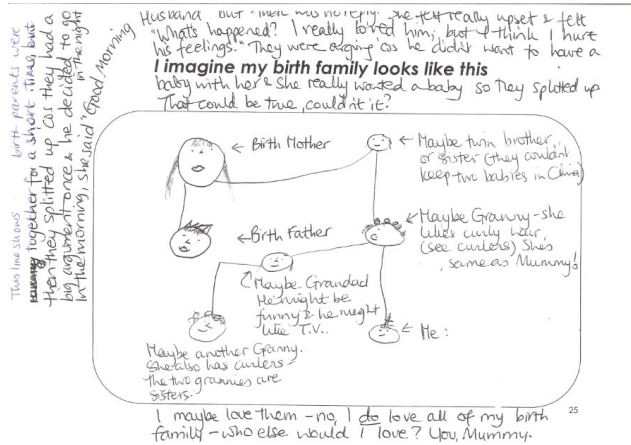 This line shows birth parents were
together for a short time, but
then they splitted up cos they had a
big argument once & he decided to go
in the night
In the morning, she said "Good Morning
Husband" but there was no reply. She felt really upset & felt
"What's happened? I really loved him, but I think I hurt
his feelings." They were arging cos he didn't want to have a
I imagine my birth family looks like this
baby with her & she really wanted a baby so they splitted up
That could be true, couldn't it?
Birth Mother
Maybe twin brother
or sister (they couldn't
keep two babies in China)
Birth Father
Maybe Granny - she
likes curly hair,
(see curlers) She's
same as Mummy!
Maybe Grandad
He might be
funny & he might
like T.V..
Me:
Maybe another Granny.
She also has curlers
the two grannies are
sisters.
25
I maybe love them - no, I do love all of my birth
family - who else would I love? You, Mummy.